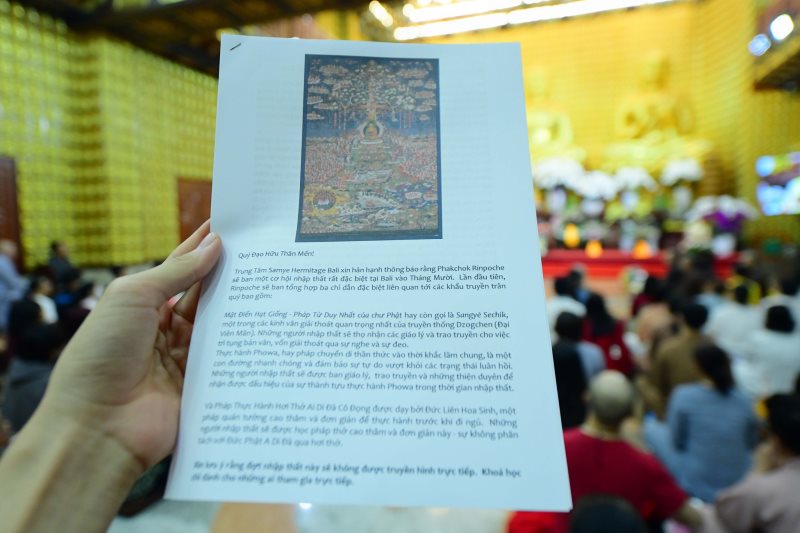 Quý Đạo Hữu Thân Mến!
Trung Tâm Samye Hermitage Bali xin hân hạnh thông báo rằng Phakchok Rinpoche
sẽ ban một cơ hội nhập thất rất đặc biệt tại Bali vào Tháng Mười. Lần đầu tiên,
Rinpoche sẽ ban tổng hợp ba chỉ dẫn đặc biệt liên quan tới các khẩu truyền trân
quý bao gồm:
Mật Điển Hạt Giống - Pháp Tử Duy Nhất của chư Phật hay còn gọi là Sangyé Sechik,
một trong các kinh văn giải thoát quan trọng nhất của truyền thống Dzogchen (Đại
Viên Mãn). Những người nhập thất sẽ thọ nhận các giáo lý và trao truyền cho việc
trì tụng bản văn, vốn giải thoát qua sự nghe và sự đeo.
Thực hành Phowa, hay pháp chuyển di thần thức vào thời khắc lâm chung, là một
con đường nhanh chóng và đảm bảo sự tự do vượt khỏi các trạng thái luân hồi.
Những người nhập thất sẽ được ban giáo lý, trao truyền và những thiện duyên để
nhận được dấu hiệu của sự thành tựu thực hành Phowa trong thời gian nhập thất.
và Pháp Thực Hành Hơi Thở Ai Di Đà Cô Đọng được dạy bởi Đức Liên Hoa Sinh, một
pháp quán tưởng cao thâm và đơn giản để thực hành trước khi đi ngủ. Những
người nhập thất sẽ được học pháp thở cao thâm và đơn giản này - sự không phân
tách với Đức Phật A Di Đà qua hơi thở.
Xin lưu ý rằng đợt nhập thất này sẽ không được truyền hình trực tiếp. Khoá học
chỉ dành cho những ai tham gia trực tiếp.